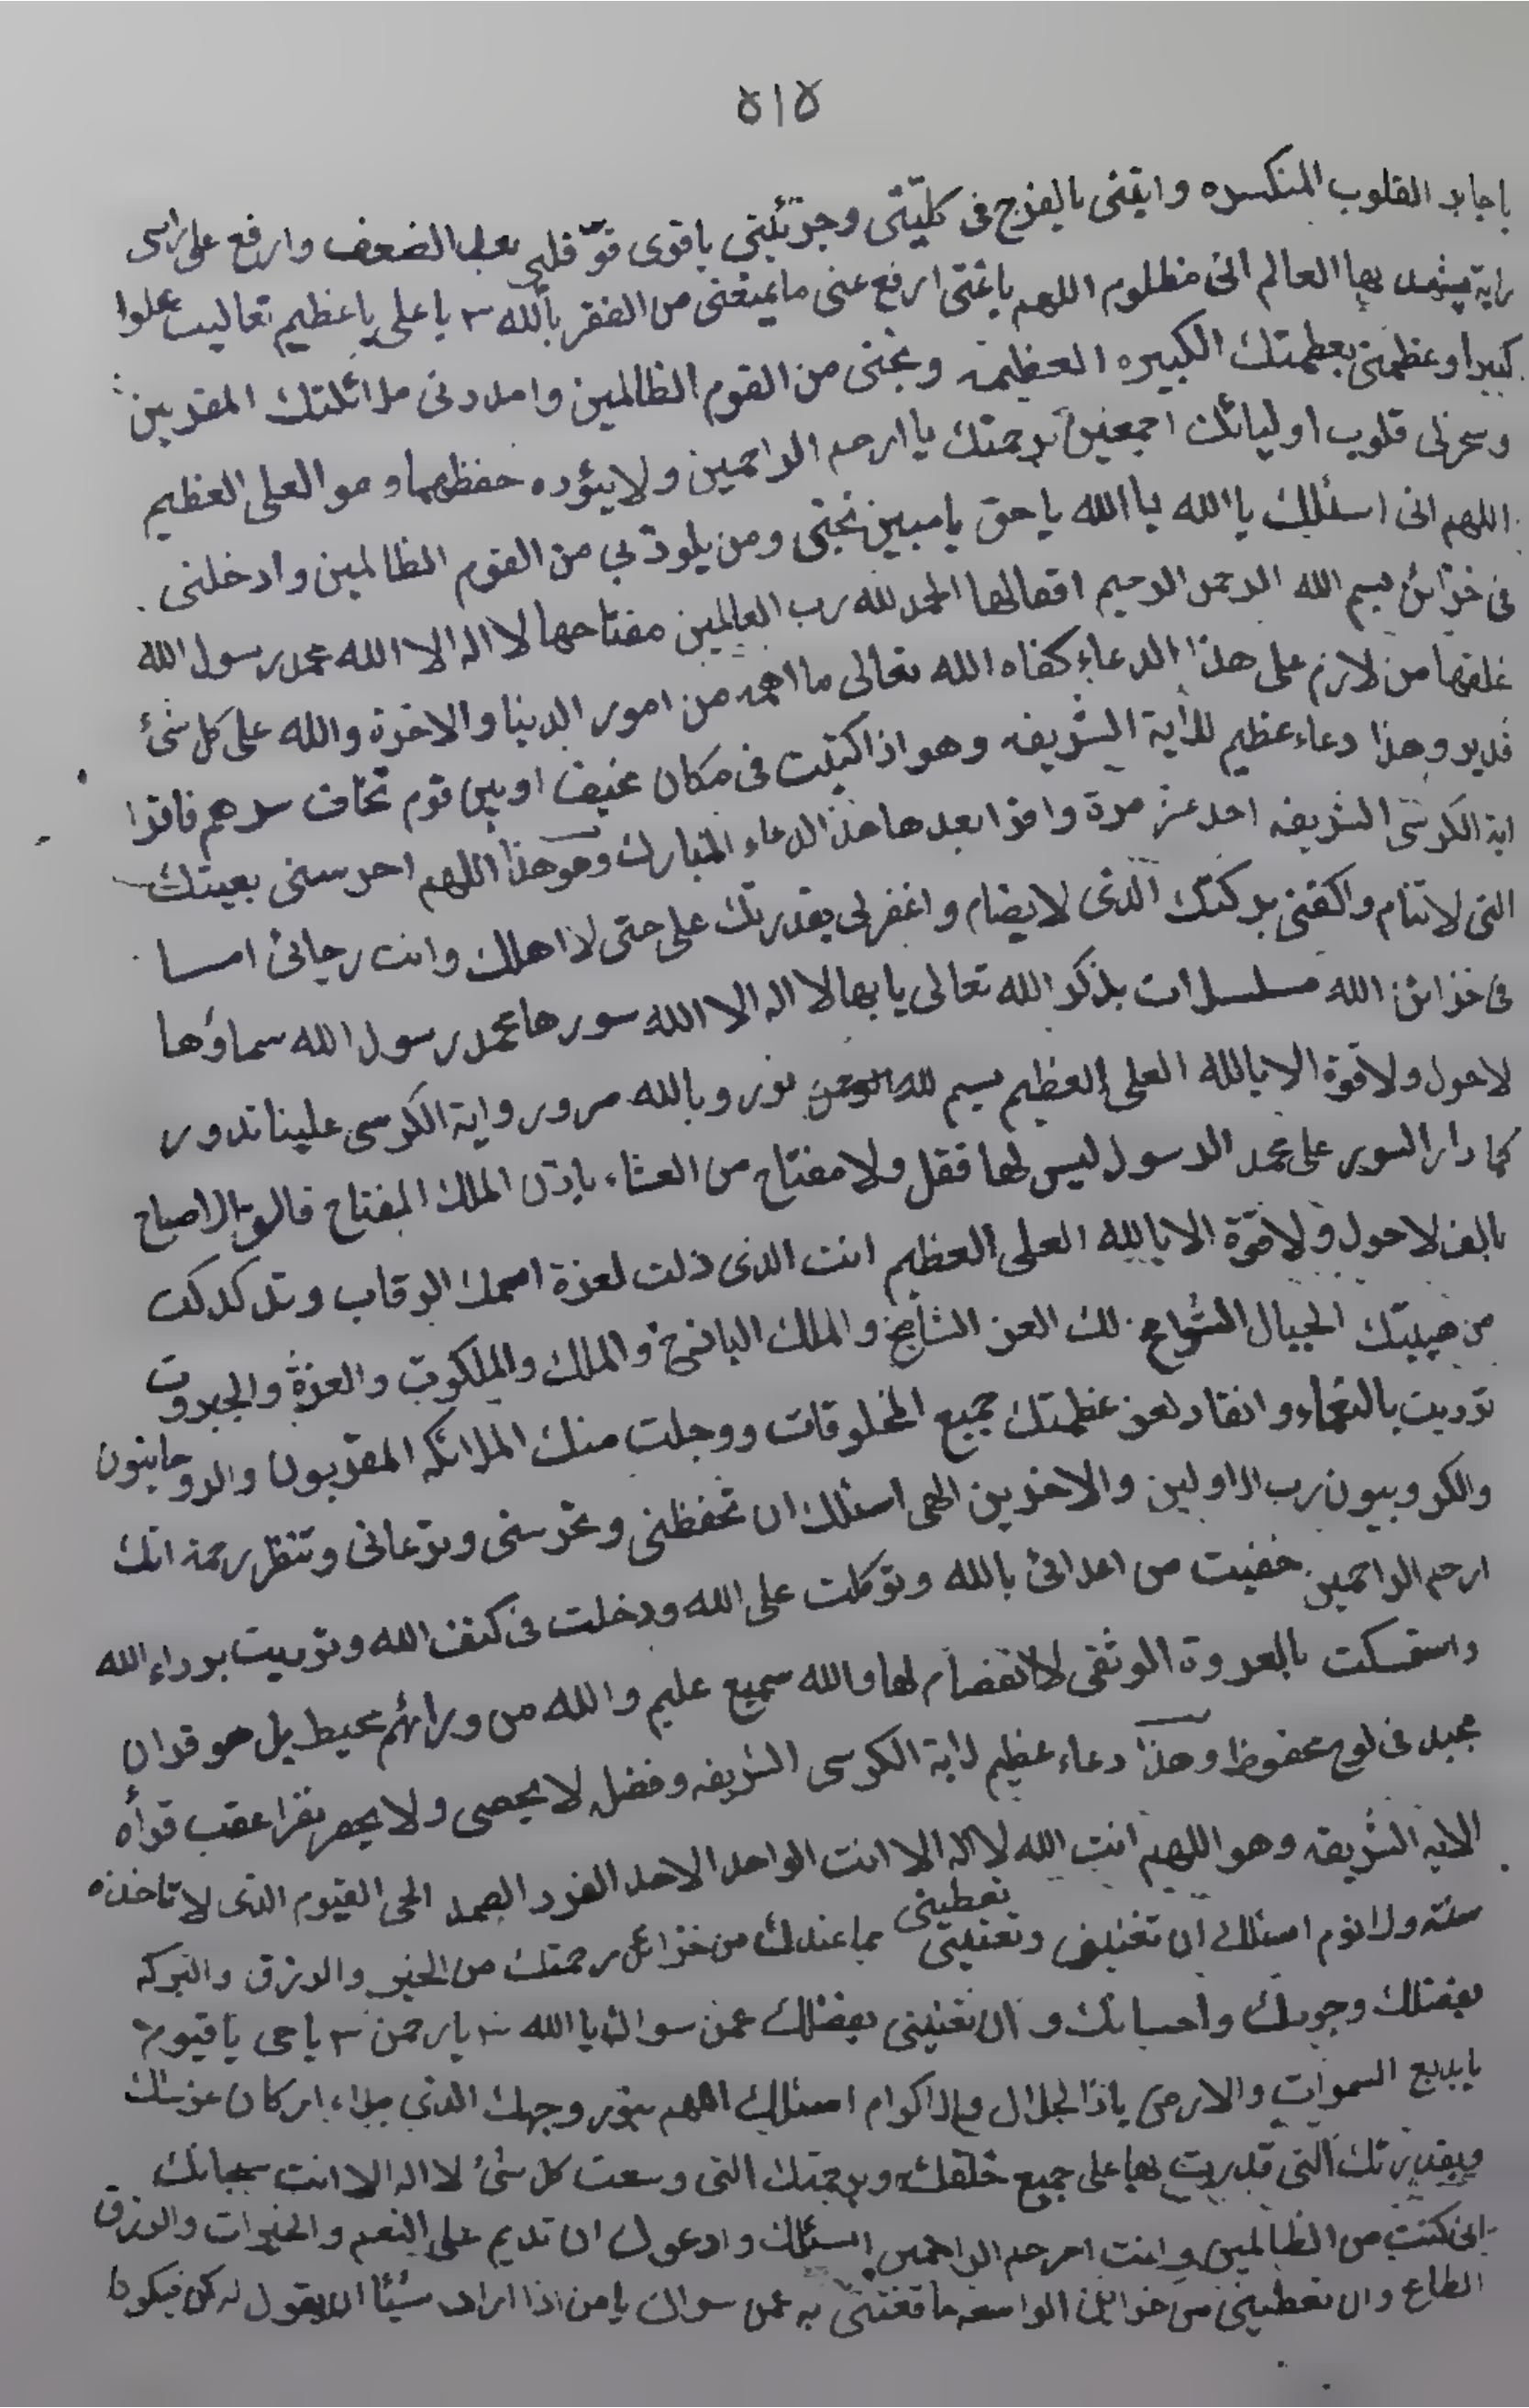 ٥١٥
يا جابر القلوب المنكسره وايتنى بالفرج فى كليتى وجرئينى يا قوى قوّ قلبى بعد الضعف وارفع على راسى
راية يشهد بها العالم انى مظلوم اللهم يا غنى ارفع عنى ما يمنعنى من الفقر يا الله ٣ يا على يا عظيم تعاليت علوا
كبيرا وعظمنى بعظمتك الكبيره العظيمه ونجنى من القوم الظالمين وامددنى ملائكتك المقربين
وسخرلى قلوب اوليائك اجمعين برحمتك يا ارحم الراحمين ولا يئوده حفظهما وهو العلى العظيم
اللهم انى اسئلك يا الله يا الله يا حق يا مبين نجنى ومن يلوذ بي من القوم الظالمين وادخلنى
فى خزائن بسم الله الرحمن الرحيم اقفالها الحمد لله رب العالمين مفتاحها لا اله الا الله محمد رسول الله
غلقها من لازم على هذا الدعاء كفاه الله تعالى ما اهمه من امور الدينا والاخرة والله على كل شئ
قدير وهذا دعاء عظيم للاية الشريفه وهو اذا كنت فى مكان مخيف او بين قوم تخاف شرهم فاقرا
اية الكرسى الشريفه احد عشر مرة واقرا بعدها هذا الدعاء المبارك وهو هذا اللهم احرسنى بعينك
التى لا تنام واكفنى بركنك الذى لا يضام واغفرلى بقدرتك على حتى لا اهلك وانت رجائى امسا
فى خزائن الله مسلسلات بذكر الله تعالى بابها لا اله الا الله سورها محمد رسول الله سماؤها
لا حول ولا قوة الا بالله العلى العظيم بسم الله نور وبالله سرور واية الكرسى علينا تدور
كما دار السور على محمد الرسول ليس لها قفل ولا مفتاح من العشاء باذن الملك المفتاح فالق الاصباح
بالف لا حول ولا قوة الا بالله العلى العظيم انت الذى ذلت لعزة اسمك الرقاب وتدكدكت
من هيبتك الجبال الشوامخ لك العز الشامخ والملك الباذخ والملك والملكوت والعزة والجبروت
ترديت بالنعماء وانقاد لعز عظمتك جميع المخلوقات ووجلت منك الملائكه المقربون والروحانيون
والكروبيون رب الاولين والاخرين الهى اسئلك ان تحفظنى وتحرسنى وترعانى وتنظر رحمة انك
ارحم الراحمين خفيت من اعدائى بالله وتوكلت على الله ودخلت فى كنف الله وترديت برداء الله
واستمسكت بالعروة الوثقى لا انفصام لها والله سميع عليم والله من ورائهم محيط بل هو قران
مجيد فى لوح محفوظ وهذا دعاء عظيم لاية الكرسى الشريفه وفضل لا يحصى ولا يحصر تقرا عقب قرأه
الايه الشريفه وهو اللهم انت الله لا اله الا انت الواحد الاحد الفرد الصمد الحى القيوم الذى لا تاخذه
سنه ولا نوم اسئلك ان تغنينى وتعنينى تعطينى مما عندك من خزائن رحمتك من الخير والرزق والبركه
بفضلك وجودك واحسانك وان تغنينى بفضلك عمن سواك يا الله ٣ يا رحمن ٣ يا حى يا قيوم ٣
يا بديع السموات والارض يا ذا الجلال والاكرام اسئلك اللهم بنور وجهك الذى ملاء اركان عرشك
وبقدرتك التى قدرت بها على جميع خلقك وبرحمتك التى وسعت كل شئ لا اله الا انت سبحانك
انى كنت من الظالمين وانت ارحم الراحمين اسئلك وادعوك ان تديم على النعم والخيرات والرزق
وان تعطينى من خزاينك الواسعه ما تغنينى به عمن سواك يا من اذا اراد شيئا ان يقول له كن فيكون